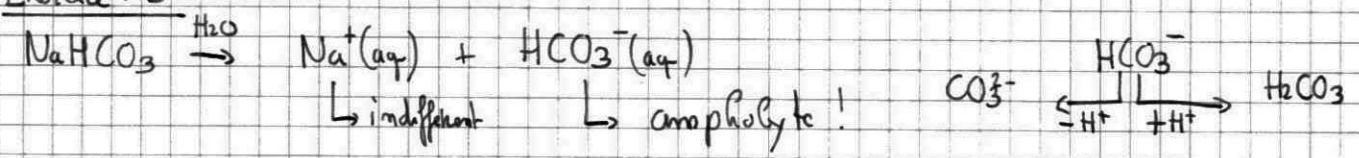 NaHCO₃ H₂O → Na⁺(aq) + HCO₃⁻(aq)
↳ indifférent ↳ ampholyte !
CO₃²⁻ ← -H⁺ HCO₃⁻ +H⁺ → H₂CO₃